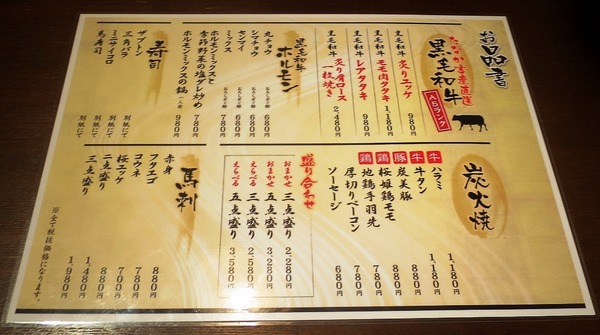 お品書
たなか畜産直送
黒毛和牛
A5ランク
黒毛和牛 炙りユッケ 980円
黒毛和牛 モモ肉タタキ 1,180円
黒毛和牛 レアタタキ 980円
黒毛和牛 炙り肩ロース一枚焼き 2,480円
黒毛和牛
ホルモン
丸チョウ 680円
シマチョウ 680円
センマイ 680円
ミックス 980円
ホルモンミックスと
季節野菜の塩ダレ炒め 780円
ホルモンミックスの鍋 一人前 980円
寿司
ザブトン 別紙にて
三角バラ 別紙にて
ミニサイコロ 別紙にて
馬寿司 別紙にて
炭火焼
牛 ハラミ 1,180円
牛 牛タン 1,180円
豚 炭美豚 880円
鶏 桜姫鶏モモ 880円
鶏 地鶏手羽先 780円
厚切りベーコン 780円
ソーセージ 680円
盛り合わせ
おまかせ 三点盛り 2,280円
おまかせ 五点盛り 3,280円
えらべる 三点盛り 2,580円
えらべる 五点盛り 3,580円
馬刺
赤身 880円
フタエゴ 780円
コウネ 700円
桜ユッケ 880円
二点盛り 1,480円
三点盛り 1,980円
※全て税抜価格になります。